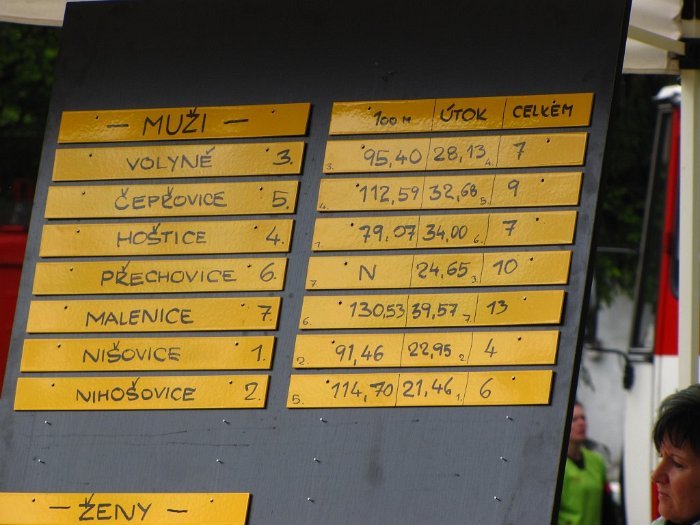 — MUŽI — 100 M ÚTOK CELKÉM
VOLYNĚ 3. 3. 95,40 28,13 4. 7
ČEPŘOVICE 5. 4. 112,59 32,68 5. 9
HOŠTICE 4. 1. 79,07 34,00 6. 7
PŘECHOVICE 6. 7. N 24,65 3. 10
MALENICE 7. 6. 130,53 39,57 7. 13
NIŠOVICE 1. 2. 91,46 22,95 2. 4
NIHOŠOVICE 2. 5. 114,70 21,46 1. 6
— ŽENY —